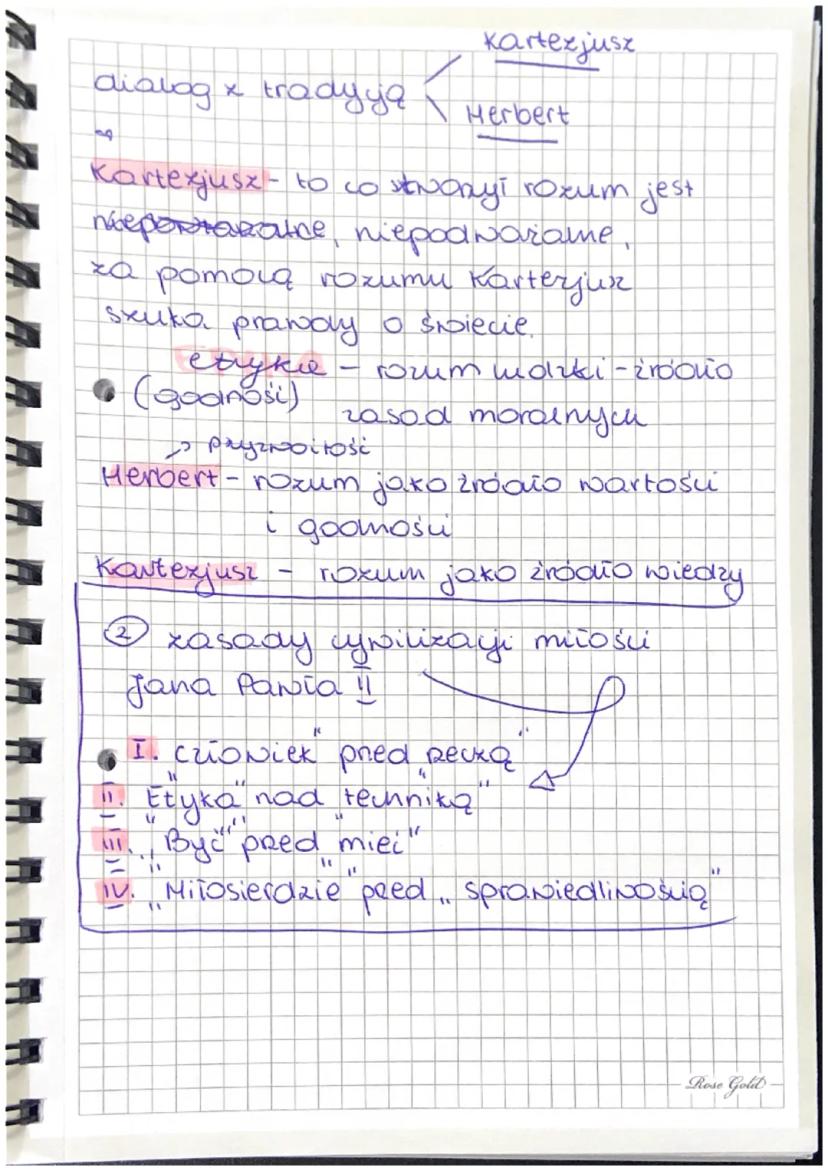 Kartezjusz
dialog z tradycją
Herbert
Kartezjusz - to co stworzył rozum jest
niepodważalne,
za pomocą rozumu Kartezjusz
szuka prawdy o świecie.
etykie - rozum ludzki - źródło
(godności) zasad moralnych
→ przyzwoitość
Herbert - rozum jako źródło wartości
i godności
Kartezjusz - rozum jako źródło wiedzy
② zasady cywilizacji miłości
Jana Pawła II
I. "człowiek" przed "rzeczą"
II. "Etyka" nad "techniką"
III. "Być" przed "mieć"
IV. "Miłosierdzie" przed "sprawiedliwością"
Rose Gold